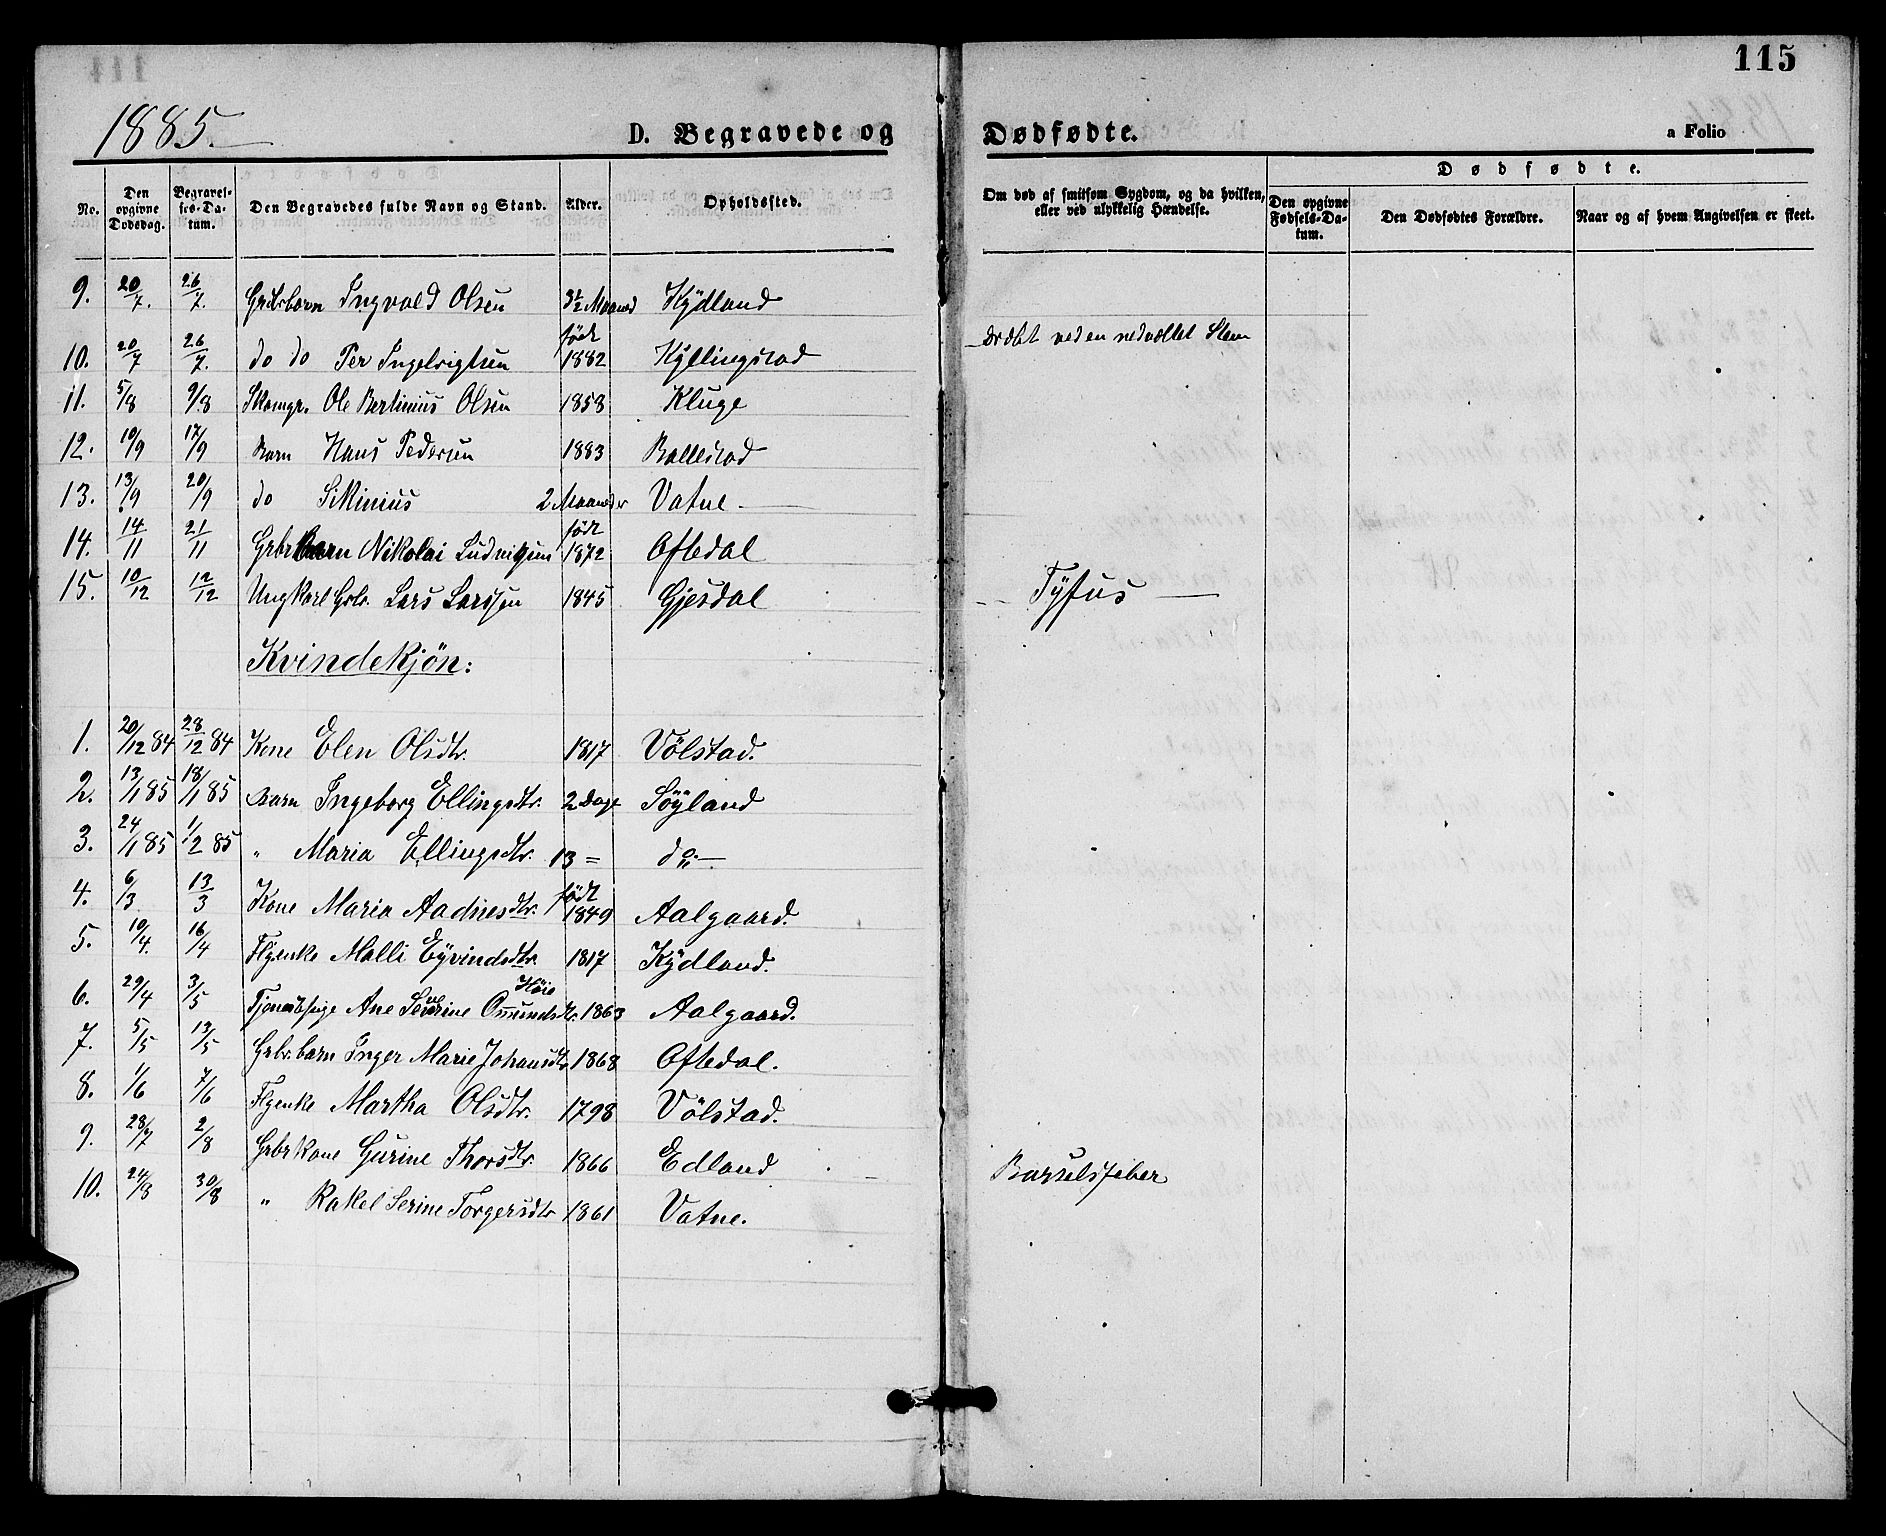 115
1885.
D. Begravede og Dødfødte. a Folio
No. | Den opgivne Dødsdag. | Begravelses-Datum. | Den Begravedes fulde Navn og Stand. | Alder. | Opholdssted. | Om død af smitsom Sygdom, og da hvilken, eller ved ulykkelig Hændelse. | Dødfødte. | Den opgivne Fødsels-Datum. | Den Dødfødtes Forældre. | Naar og af hvem Angivelsen er skeet.
9. 20/7. 26/7. Grbr.barn Ingvald Olsen 3½ Maaned Kydland
10. 20/7 26/7. do do Per Ingebrigtsen født 1882 Kyllingstad dræbt ved en nedvæltet Sten
11. 5/8 9/8 Skomgr. Ole Bertinius Olsen 1858 Kluge
12. 10/9 17/9 Barn Hans Pedersen 1883 Ballestad
13. 13/9 20/9 do Sikinius 2 Maaneder Vatne
14. 14/11 21/11 Grbrbarn Nikolai Ludvigsen født 1872 Oftedal
15. 10/12 12/12 Ungkarl Grbr. Lars Larssen 1845 Gjesdal Tyfus
Kvindekjøn:
1. 20/12 84 28/12 84 Kone Elen Olsdtr. 1817 Völstad.
2. 13/1 85 18/1 85 Barn Ingeborg Ellingsdtr. 2 Dage Söyland
3. 24/1 85 1/2 85 " Maria Ellingsdtr. 13 = do.
4. 6/3 13/3 Kone Maria Aadnesdtr. født 1849 Aalgaard.
5. 10/4. 16/4 Flgenke Malli Eyvindsdtr. 1817 Kydland.
Höie
6. 29/4 3/5 Tjenestepige Ane Severine Omundsdtr. 1863 Aalgaard.
7. 5/5 13/5 Grbr.barn Inger Marie Johansdtr 1868 Oftedal.
8. 1/6 7/6 Flgenke Martha Olsdtr. 1798 Völstad.
9. 28/7 2/8 Grbrkone Gurine Thorsdtr. 1866 Edland Barselsfeber
10. 24/8 30/8 " Rakel Serine Torgersdtr 1861 Vatne.